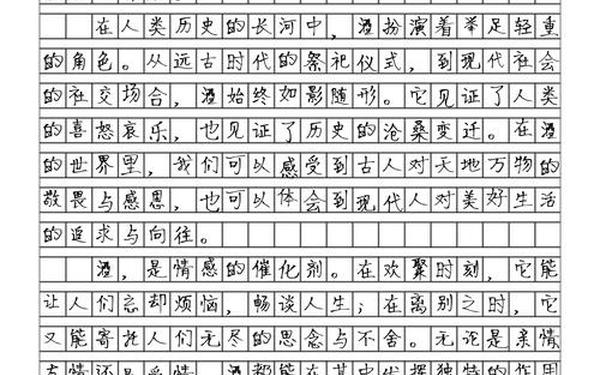 在人类历史的长河中，酒扮演着举足轻重
的角色。从远古时代的祭祀仪式，到现代社会
的社交场合，酒始终如影随形。它见证了人类
的喜怒哀乐，也见证了历史的沧桑变迁。在酒
的世界里，我们可以感受到古人对天地万物的
敬畏与感恩，也可以体会到现代人对美好生活
的追求与向往。
酒，是情感的催化剂。在欢聚时刻，它能
让人们忘却烦恼，畅谈人生；在离别之时，它
又能寄托人们无尽的思念与不舍。无论是亲情
友情还是爱情，酒都能在其中发挥独特的作用